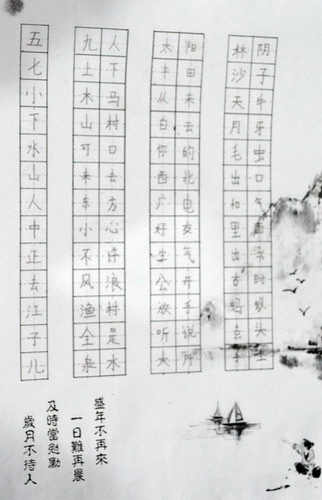 阴子牛牙虫口气西时头
林沙天月毛出和里出古妈点
阳田来去的北电友气开手说厅
太丰从白你西广好生公放听大
人下马村口去方心许浪村是水
九上木山可来东小不风渔全泉
五七小下水山人中正去江子儿
盛年不再來
一日難再晨
及時當勉勵
歲月不待人